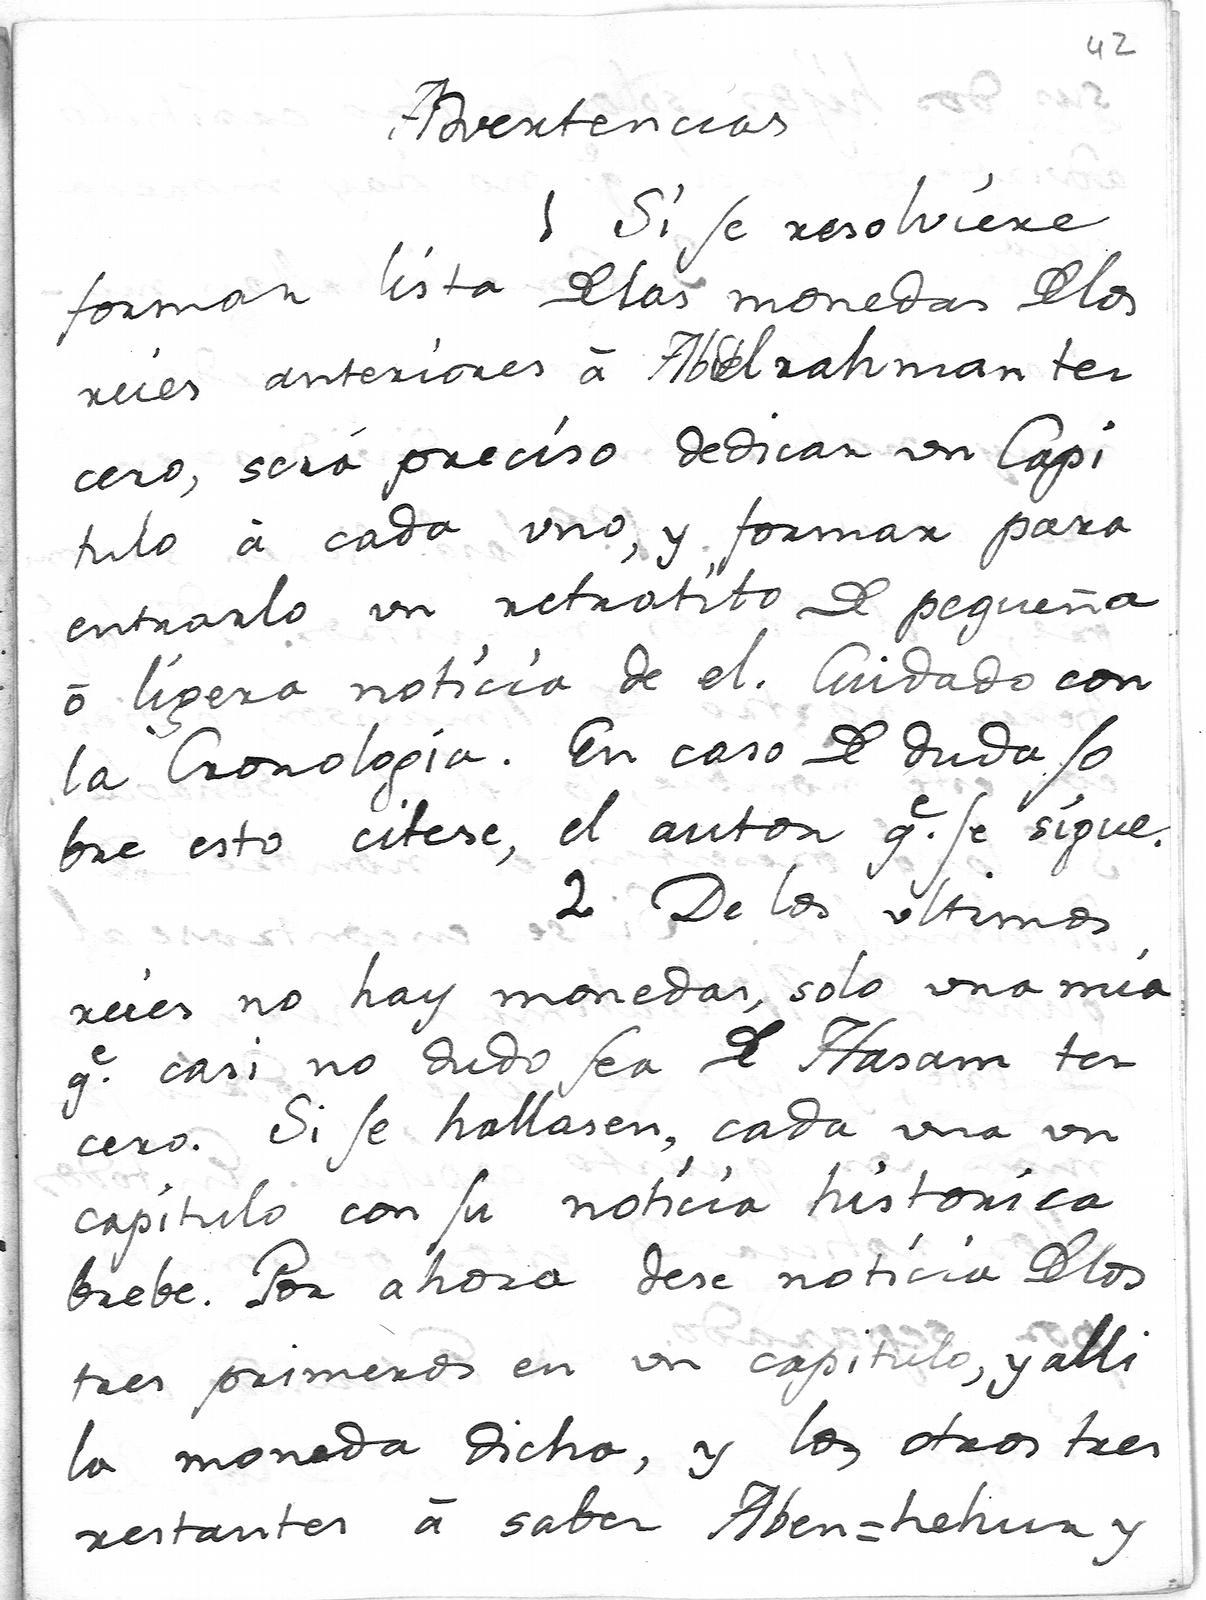 42
Advertencias
1 Si se resolviere
formar lista Delas monedas Delos
reies anteriores à Abdelrahman ter
cero, será preciso dedicar un Capi
tulo à cada uno, y formar para
entrarlo un retratito De pequeña
ō ligera noticia de el. Cuidado con
la Cronologia. En caso De duda so
bre esto citese, el autor qe. se sigue.
2 De los ultimos
reies no hay monedas, solo una mia
qe. casi no dudo sea De Hasam ter
cero. Si se hallasen, cada una un
capitulo con su noticia historica
brebe. Por ahora dese noticia Delos
tres primeros en un capitulo, y alli
la moneda dicha, y los otros tres
restantes ā saber Aben=hehur y